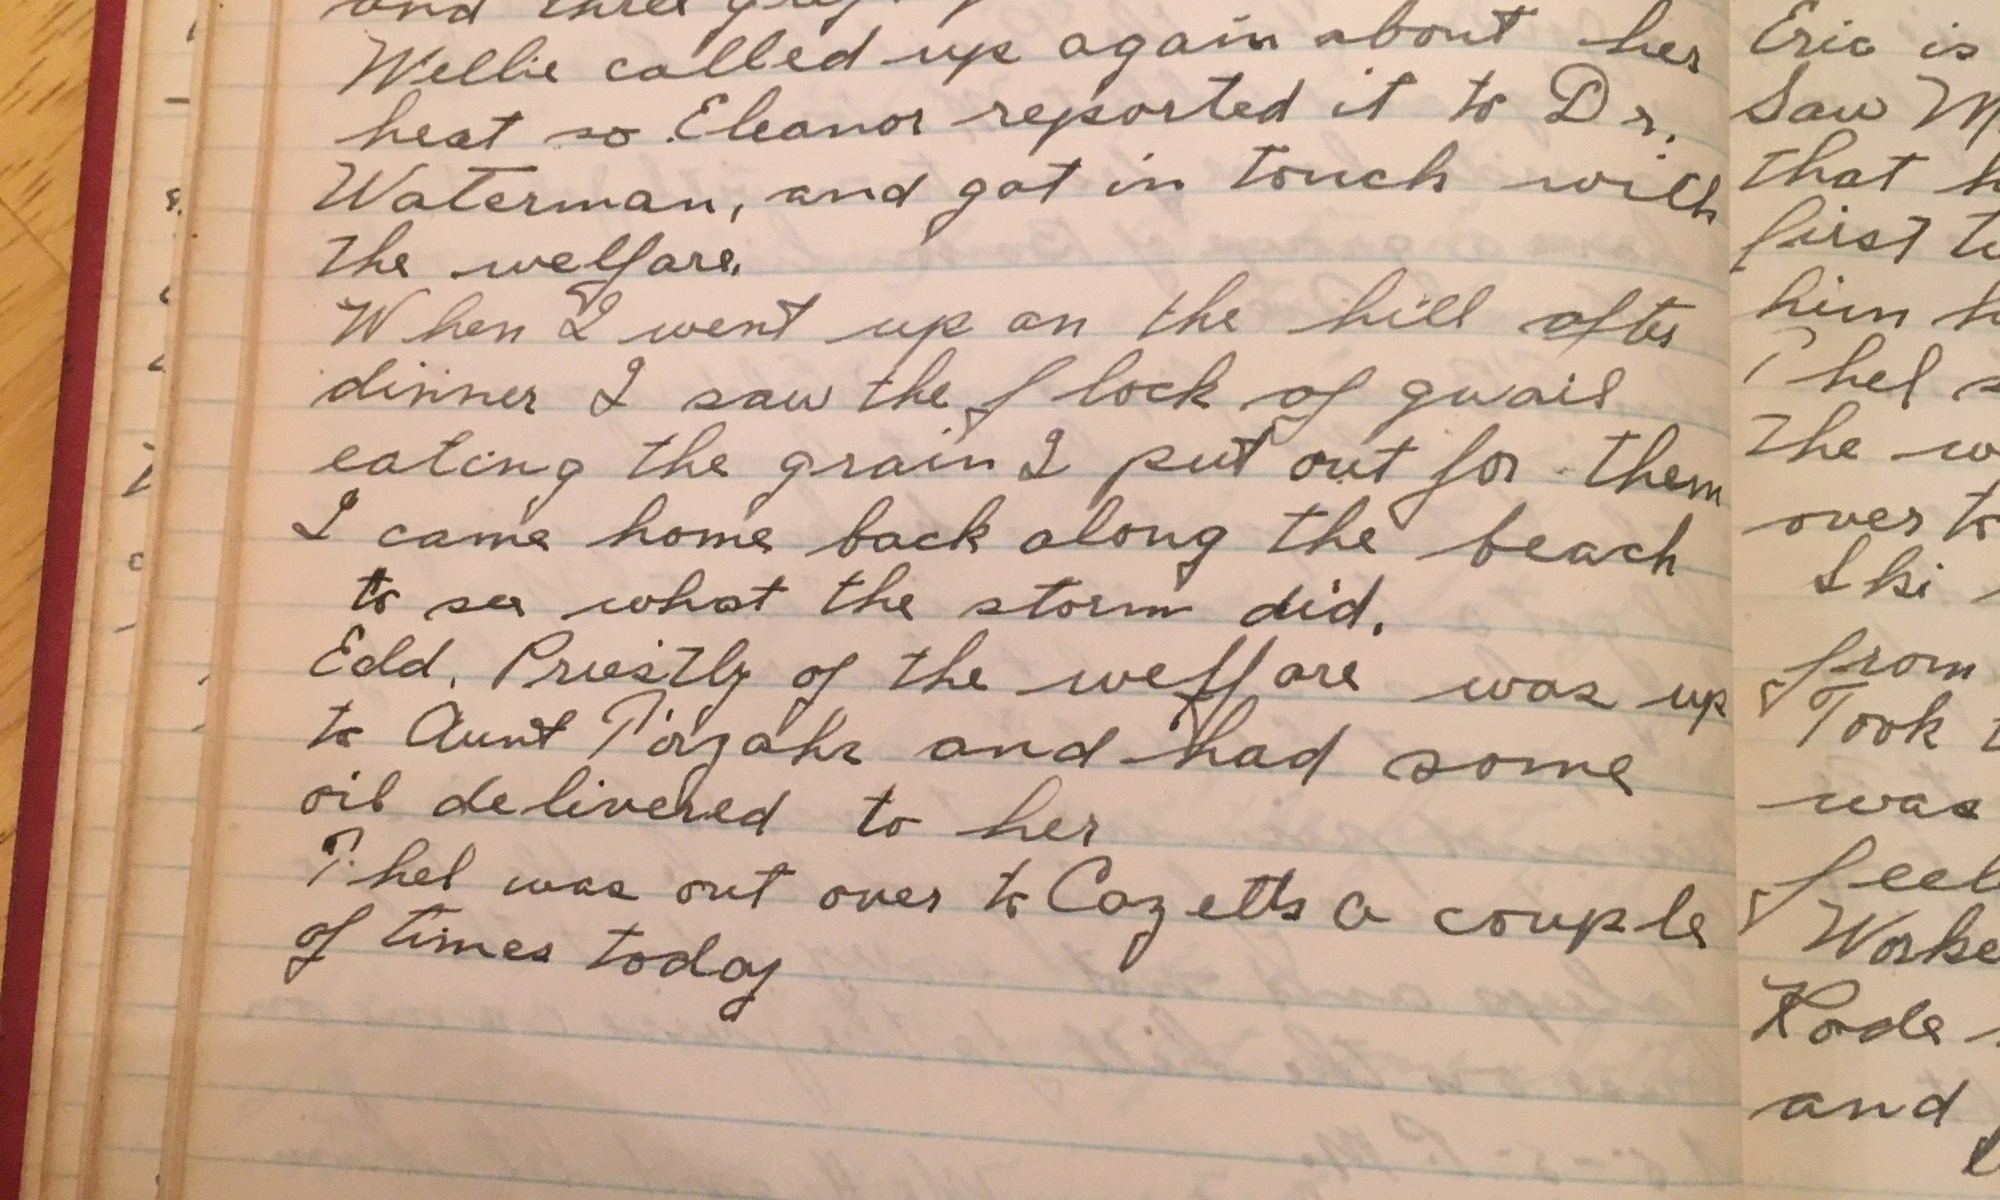 and three
Wellie called up again about her
heat so Eleanor reported it to Dr.
Waterman, and got in touch with
the welfare.
When I went up on the hill after
dinner I saw the flock of quail
eating the grain I put out for them
I came home back along the beach
to see what the storm did.
Edd. Priestly of the welfare was up
to Aunt Tirzahs and had some
oil delivered to her
Thel was out over to Cozetts a couple
of times today
Eric is
Saw
that
first
him
Thel
the
over to
Ski
from
Took
was
Rode
and